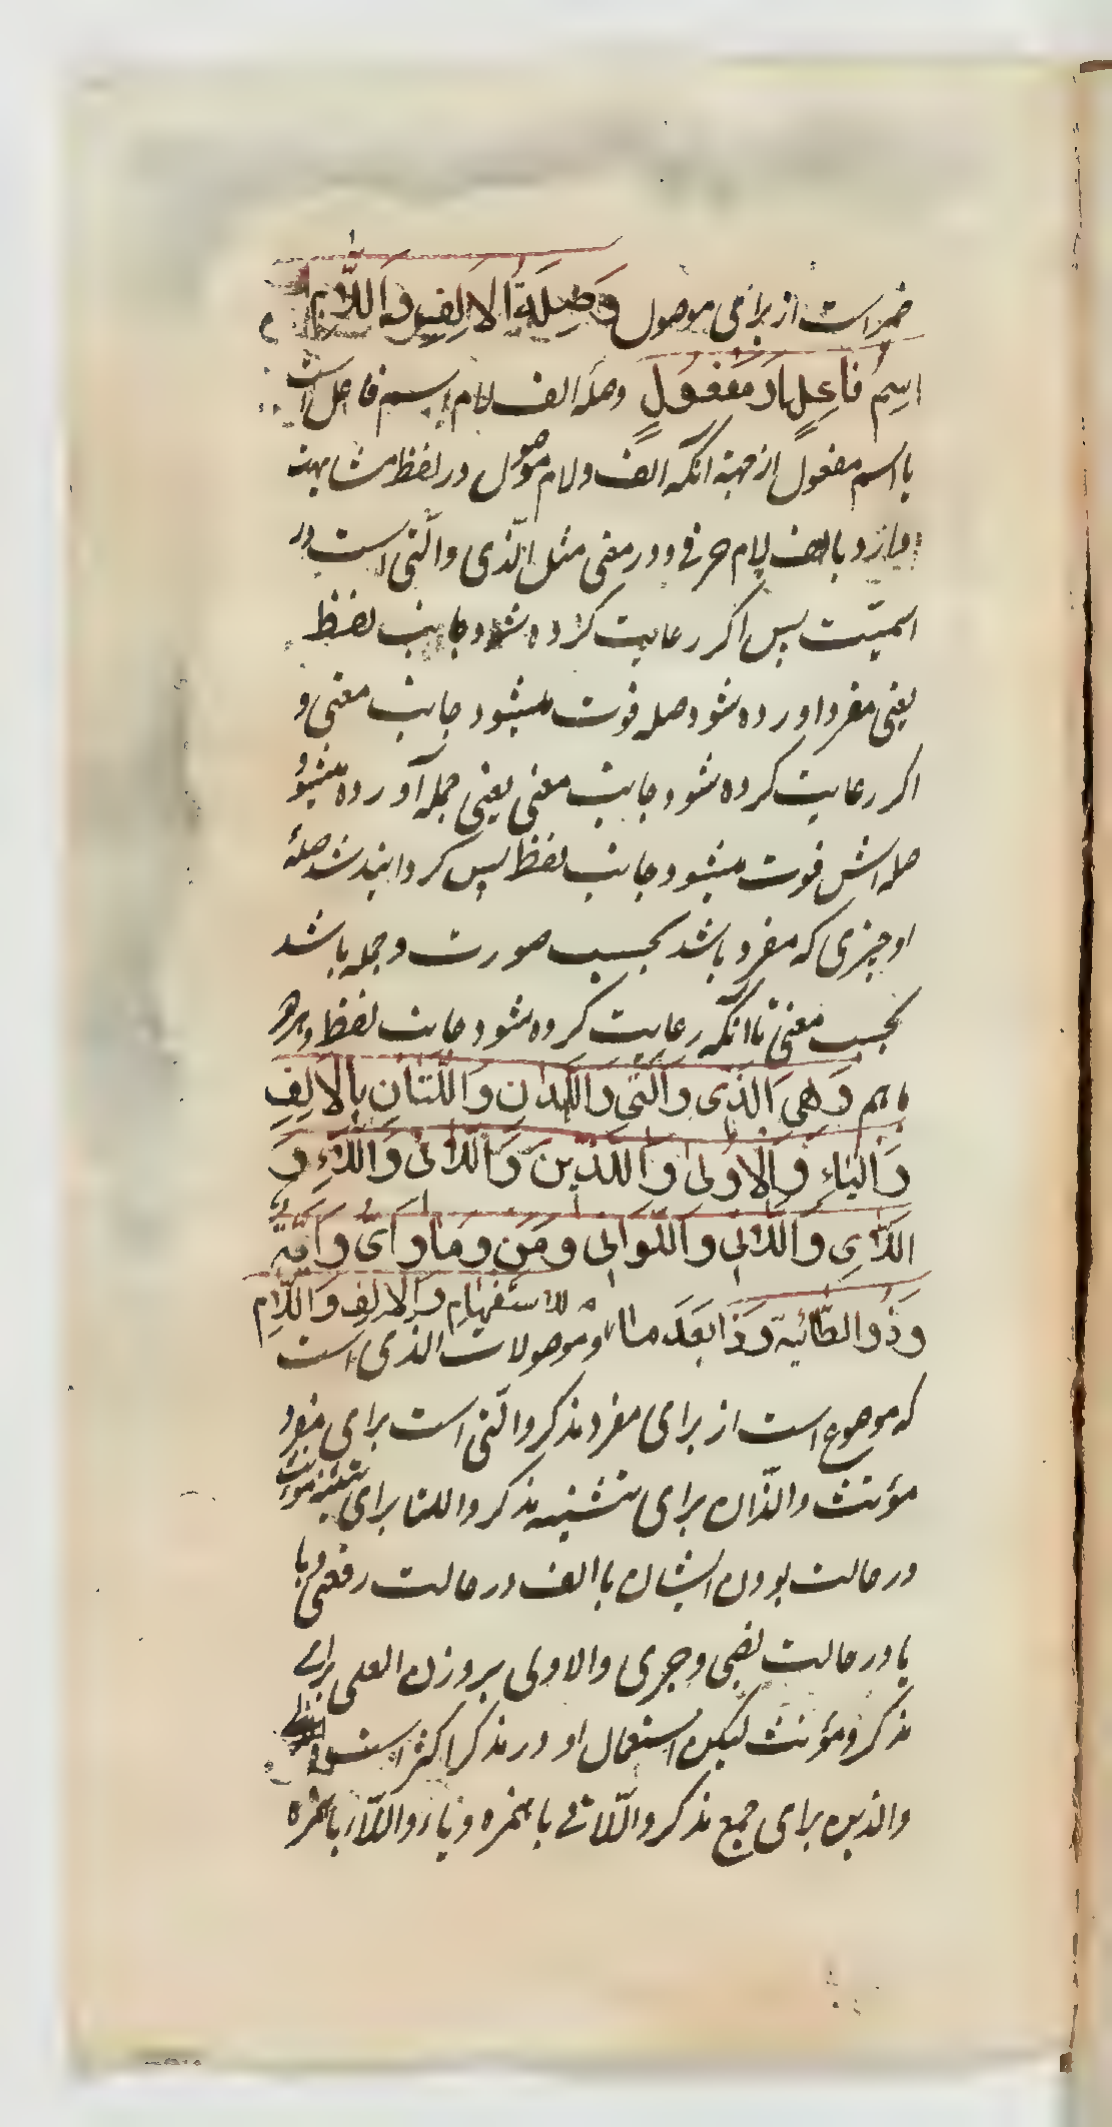 ضمیر است از برای موصول وَصِلَةُ الالِفِ وَاللَّامِ
اسِمُ فَاعِلٍ اَوْ مَفْعُولٍ وصله الف لام اسم فاعل است
یا اسم مفعول از جهة انکه الف و لام موصول در لفظ مشابهت
دارد با الف لام حرفی و در معنی مثل الّذی والّتی است در
اسمیّت پس اکر رعایت کرده شود جانب لفظ
یعنی مفرد اورده شود صله فوت میشود جانب معنی و
اکر رعایت کرده شود جانب معنی یعنی جمله آورده میشود
صله اش فوت میشود جانب لفظ پس کردانیدند صلهٔ
او چیزی که مفرد باشد بحسب صورت و جمله باشد
بحسب معنی تا انکه رعایت کرده شود جانب لفظ و هر
هم وَهِیَ الَّذِی وَالَّتِی وَاللَّذَانِ وَاللَّتَانِ بِالْاَلِفِ
وَالْیَاءِ وَالْاُولیٰ وَالَّذِینَ وَاللَّائی وَاللَّاءِ وَ
اللَّایِ وَاللَّاتی وَاللَّوَاتی وَمَنْ وَمَا وَاَیُّ وَاَیَّةُ
وَذُو الطَّائِیَّةُ وَذَا بَعْدَ مَا للاستفهَامِ وَالْاَلِفِ وَاللَّامِ
و موصولات الذی است
که موضوع است از برای مفرد مذکر والّتی است برای مفرد
مؤنث والذّان برای تثنیه مذکر واللتا برای تثنیه مؤنث
در حالت بودن ایشان با الف در حالت رفعی و با
یا در حالت نصبی و جری والاولی بر وزن العلی برای
مذکر و مؤنث لیکن استعمال او در مذکر اکثر است
والذین برای جمع مذکر واللّائی با همزه و یاء واللّاء با همزه